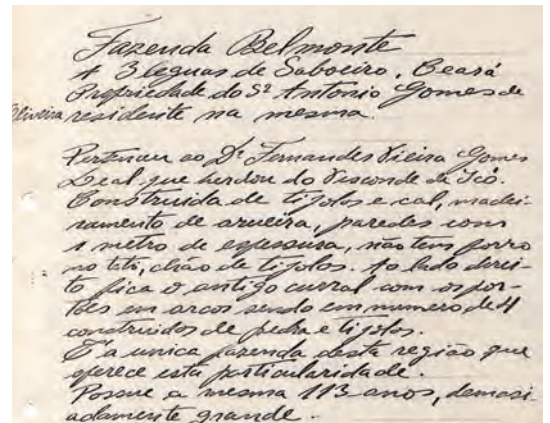 Fazenda Belmonte
A 3 leguas de Saboeiro, Ceará
Propriedade do Sr. Antonio Gomes de
Oliveira residente na mesma.
Pertenceu ao Dr. Fernandes Vieira Gomes
Leal que herdou do Visconde de Icó.
Construida de tijolos e cal, madei-
ramento de arueira, paredes com
1 metro de espessura, não tem forro
no této, chão de tijolos. Ao lado direi-
to fica o antigo curral com os por-
tões em arcos sendo em numero de 4
construidos de pedra e tijolos.
É a unica fazenda desta região que
oferece esta particularidade.
Possue a mesma 113 anos, demasi
adamente grande.